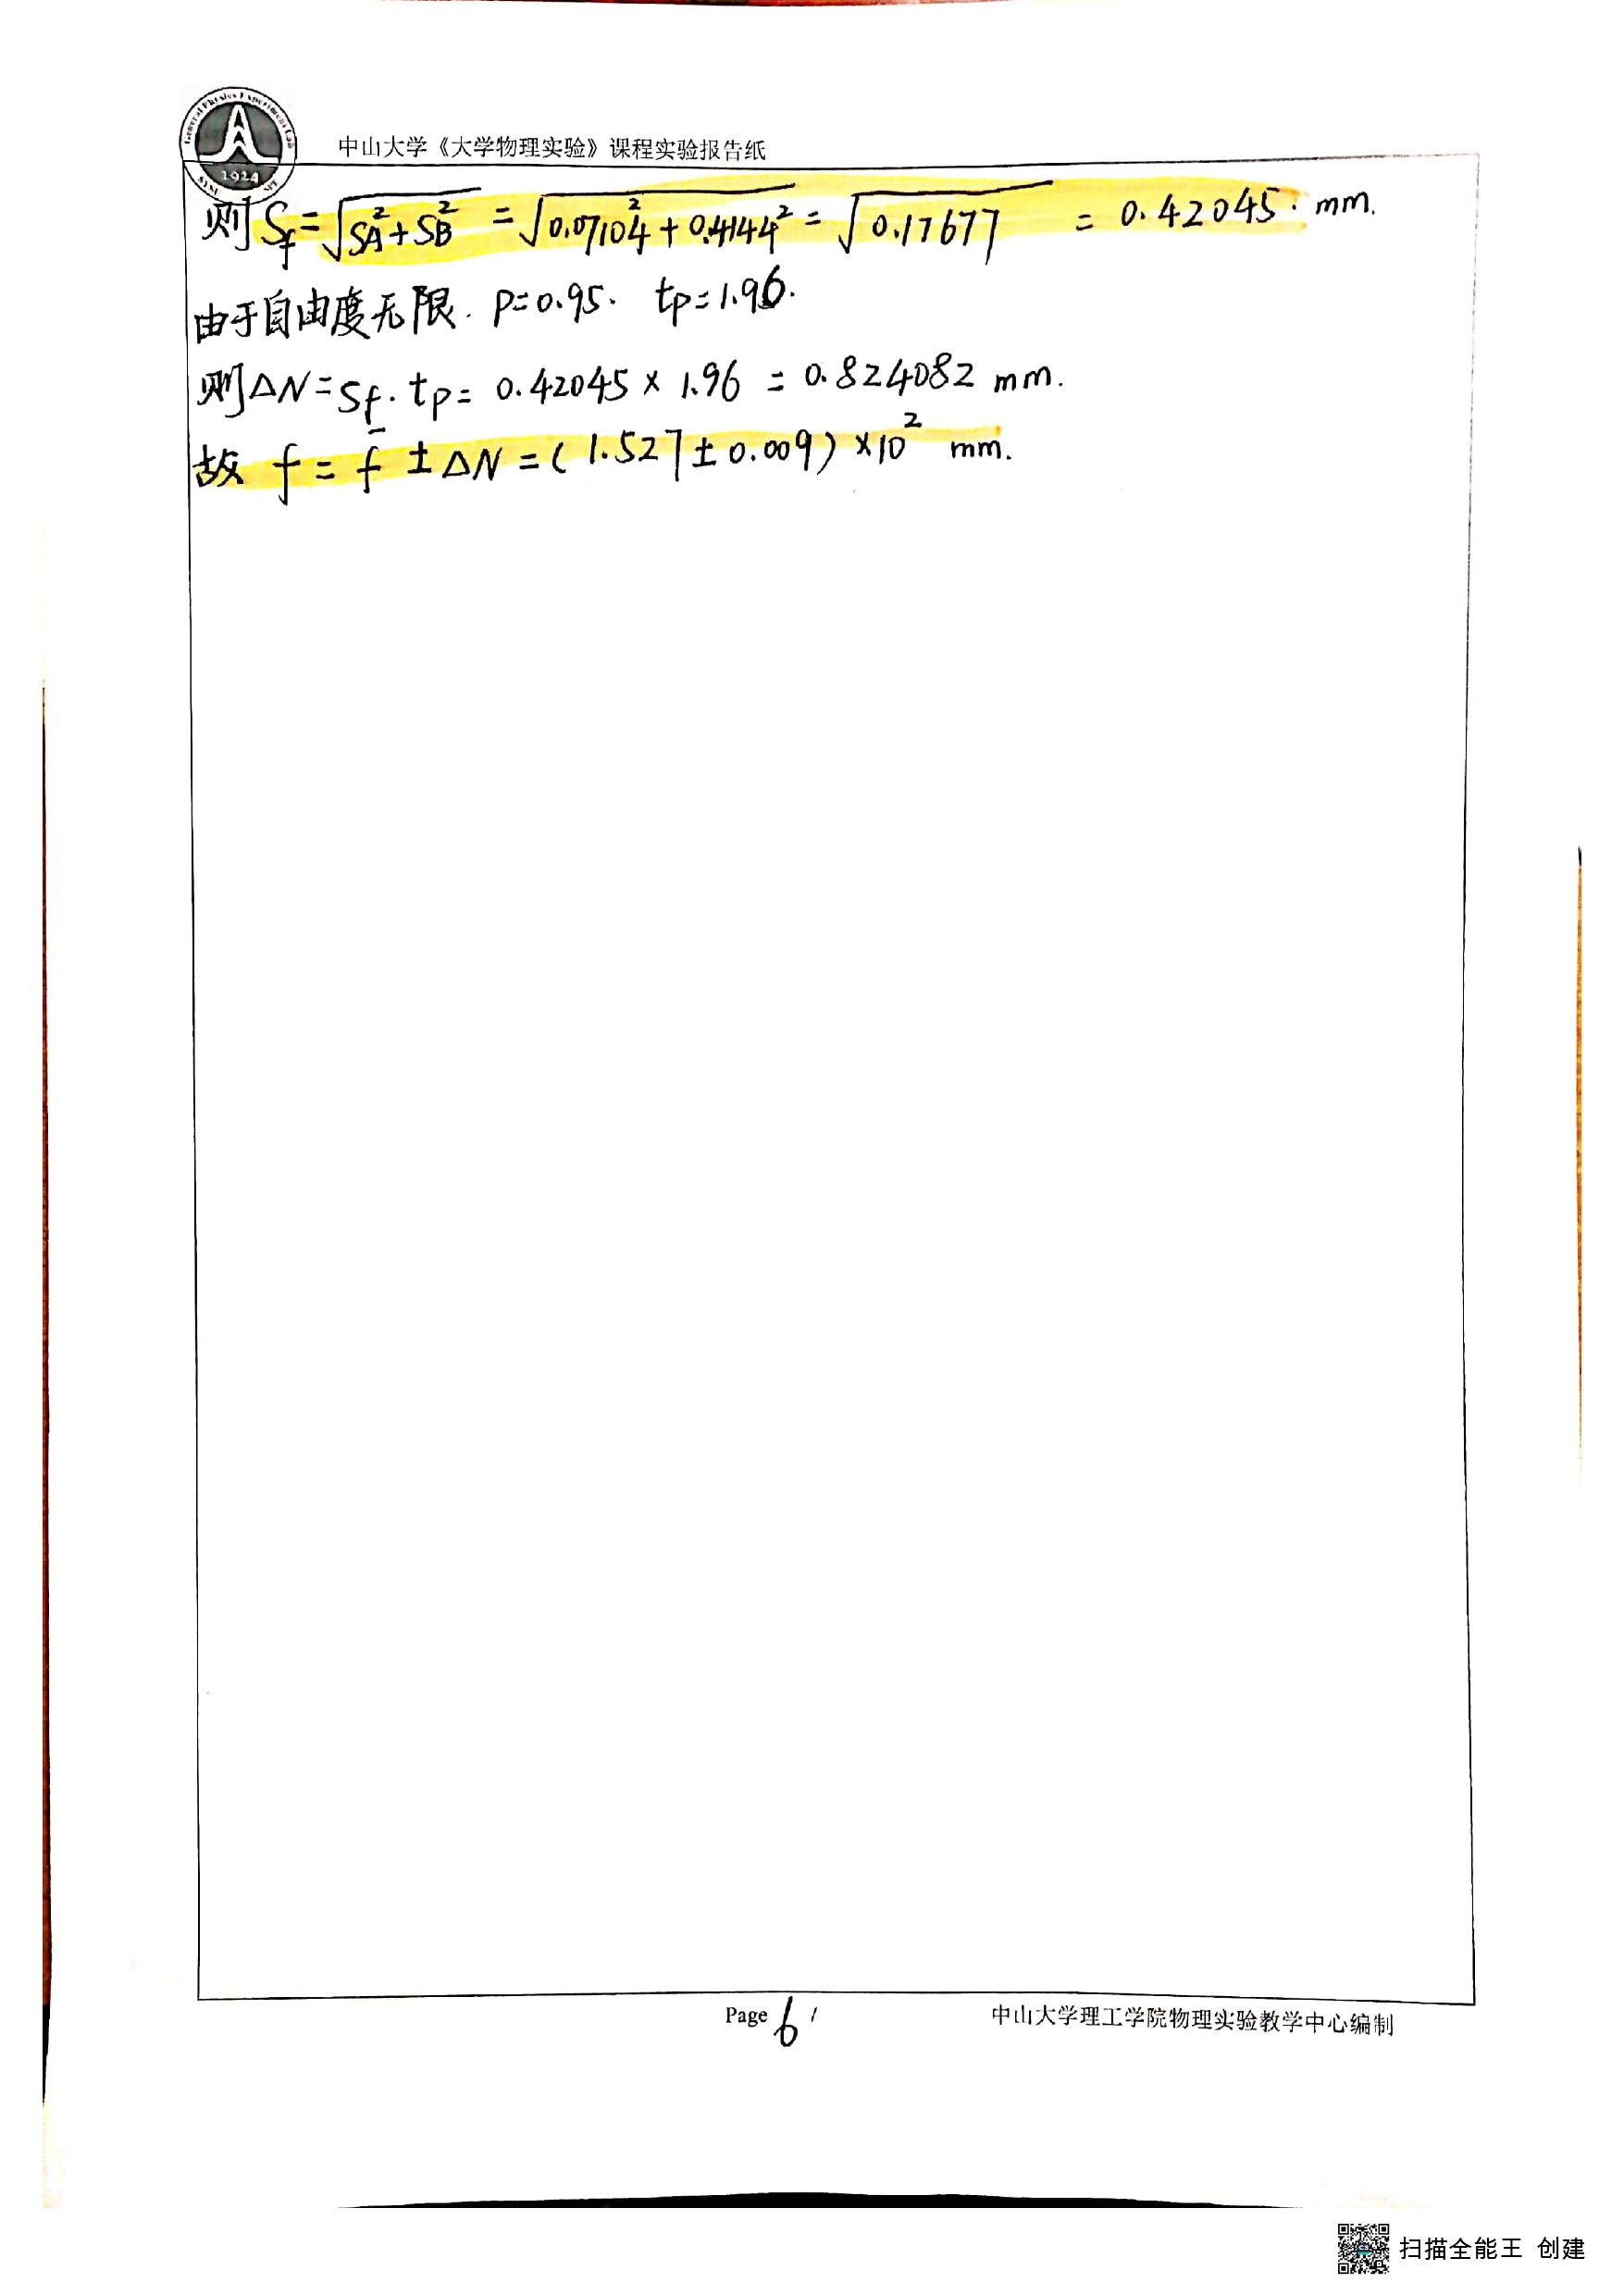 General Physics Experiment Lab
1924
中山大学《大学物理实验》课程实验报告纸
则 Sf = √(SA² + SB²) = √(0.07104² + 0.4144²) = √0.17677 = 0.42045. mm.
由于自由度无限. P=0.95. tp=1.96.
则 ΔN = Sf · tp = 0.42045 × 1.96 = 0.824082 mm.
故 f = f̄ ± ΔN = (1.527 ± 0.009) ×10² mm.
Page 6 /
中山大学理工学院物理实验教学中心编制
扫描全能王 创建